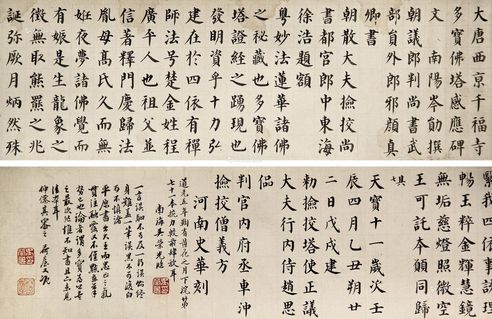 大唐西京千福寺
多寶佛塔感應碑
文 南陽岑勛撰
朝議郎判尚書武
部員外郎邪顏真
卿書
朝散大夫撿挍尚
書都官郎中東海
徐浩題額
粵妙法蓮華諸佛
之秘藏也多寶佛
塔證經之踴現也
發明資乎十力弘
建在於四依有禪
師法号楚金姓程
廣平人也祖父並
信著釋門慶歸法
胤母高氏久而無
妊夜夢諸佛覺而
有娠是生龍象之
徵無取熊羆之兆
誕弥厥月炳然殊
繫我四依真空理
暢玉粹金輝慧鏡
無垢慈燈照微空
王可託本願同歸
其七
天寶十一歲次壬
辰四月乙丑朔廿
二日戊戌建
勅撿挍塔使正議
大夫行內侍趙思
偘
判官內府丞車沖
撿挍僧義方
河南史華刻
道光五年
南海吳榮光臨